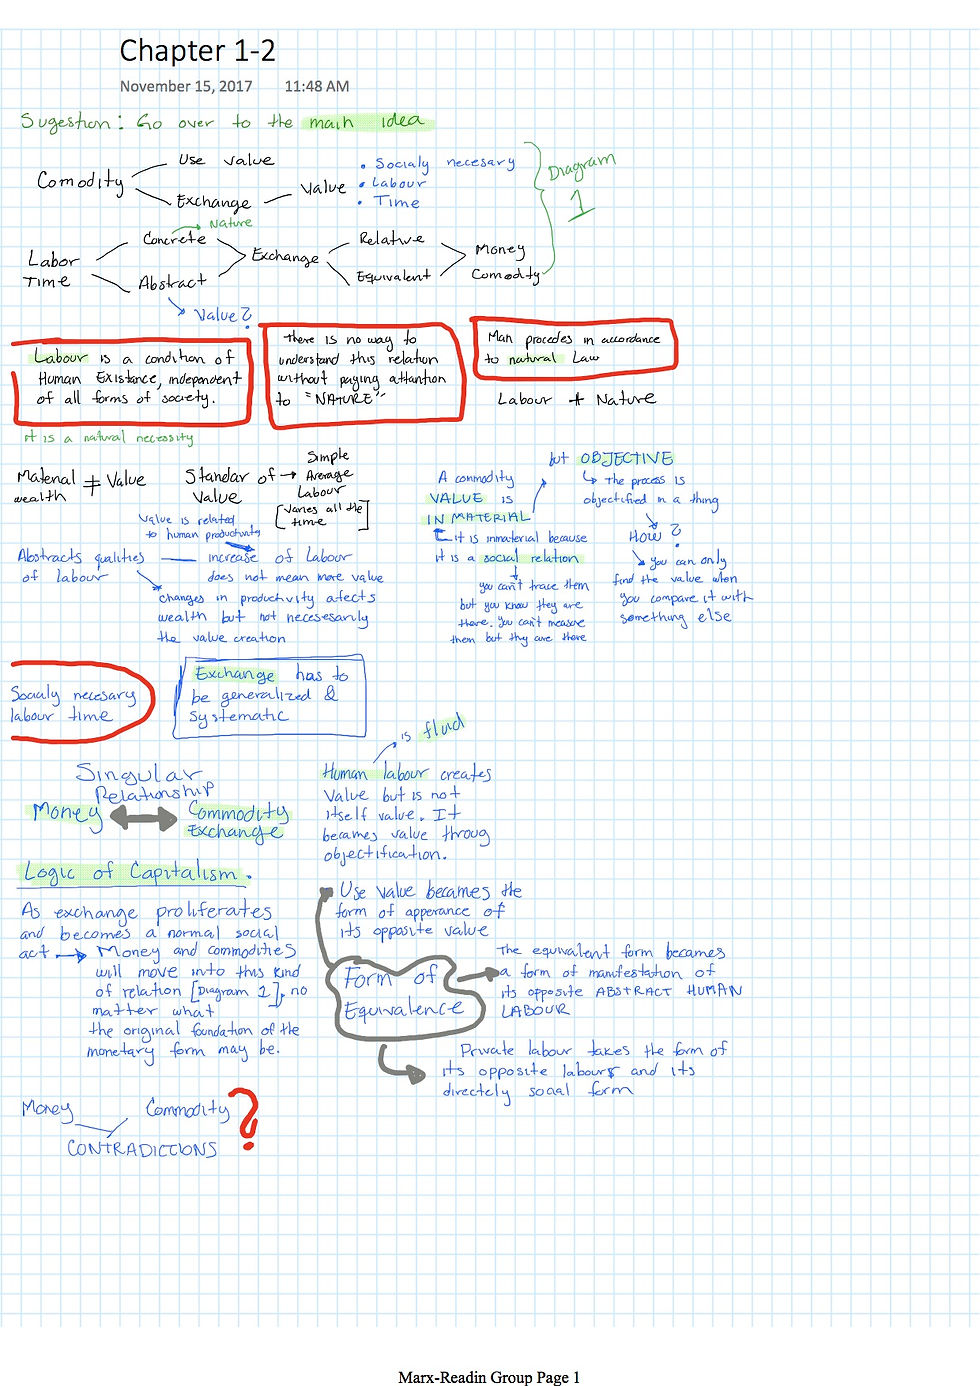 Chapter 1-2
November 15, 2017 11:48 AM
Sugestion: Go over to the main idea
Comodity
Use value
Exchange
Value
• Socialy necesary
• Labour
• Time
Diagram
1
Labor
Time
Concrete
Nature
Abstract
Value?
Exchange
Relative
Equivalent
Money
Comodity
Labour is a condition of
Human Existance, independent
of all forms of society.
it is a natural necessity
there is no way to
understand this relation
without paying attention
to "NATURE"
Man procedes in accordance
to natural Law
Labour + Nature
Material ≠ Value
wealth
Standar of →
Value
Simple
Average
Labour
[Varies all the
time]
Value is related
to human productivity
Abstracts qualities
of labour
increase of Labour
does not mean more value
changes in productivity afects
wealth but not necesesarily
the value creation
A commodity
VALUE is
IN MATERIAL
it is inmaterial because
it is a social relation
you can't trace them
but you know they are
there. you can't measure
them but they are there
but OBJECTIVE
the process is
objectified in a thing
How?
you can only
find the value when
you compare it with
something else
Socialy necesary
labour time
Exchange has to
be generalized &
systematic
Singular
Relationship
Money
Commodity
Exchange
is fluid
Human labour creates
Value but is not
itself value. It
becames value throug
objectification.
Logic of Capitalism.
As exchange proliferates
and becomes a normal social
act → Money and commodities
will move into this kind
of relation [Diagram 1], no
matter what
the original foundation of the
monetary form may be.
Use Value becames the
form of apperance of
its opposite value
Form of
Equivalence
The equivalent form becames
a form of manifestation of
its opposite ABSTRACT HUMAN
LABOUR
Private labour takes the form of
its opposite labours and its
directely social form
Money
Commodity
?
CONTRADICTIONS
Marx-Readin Group Page 1